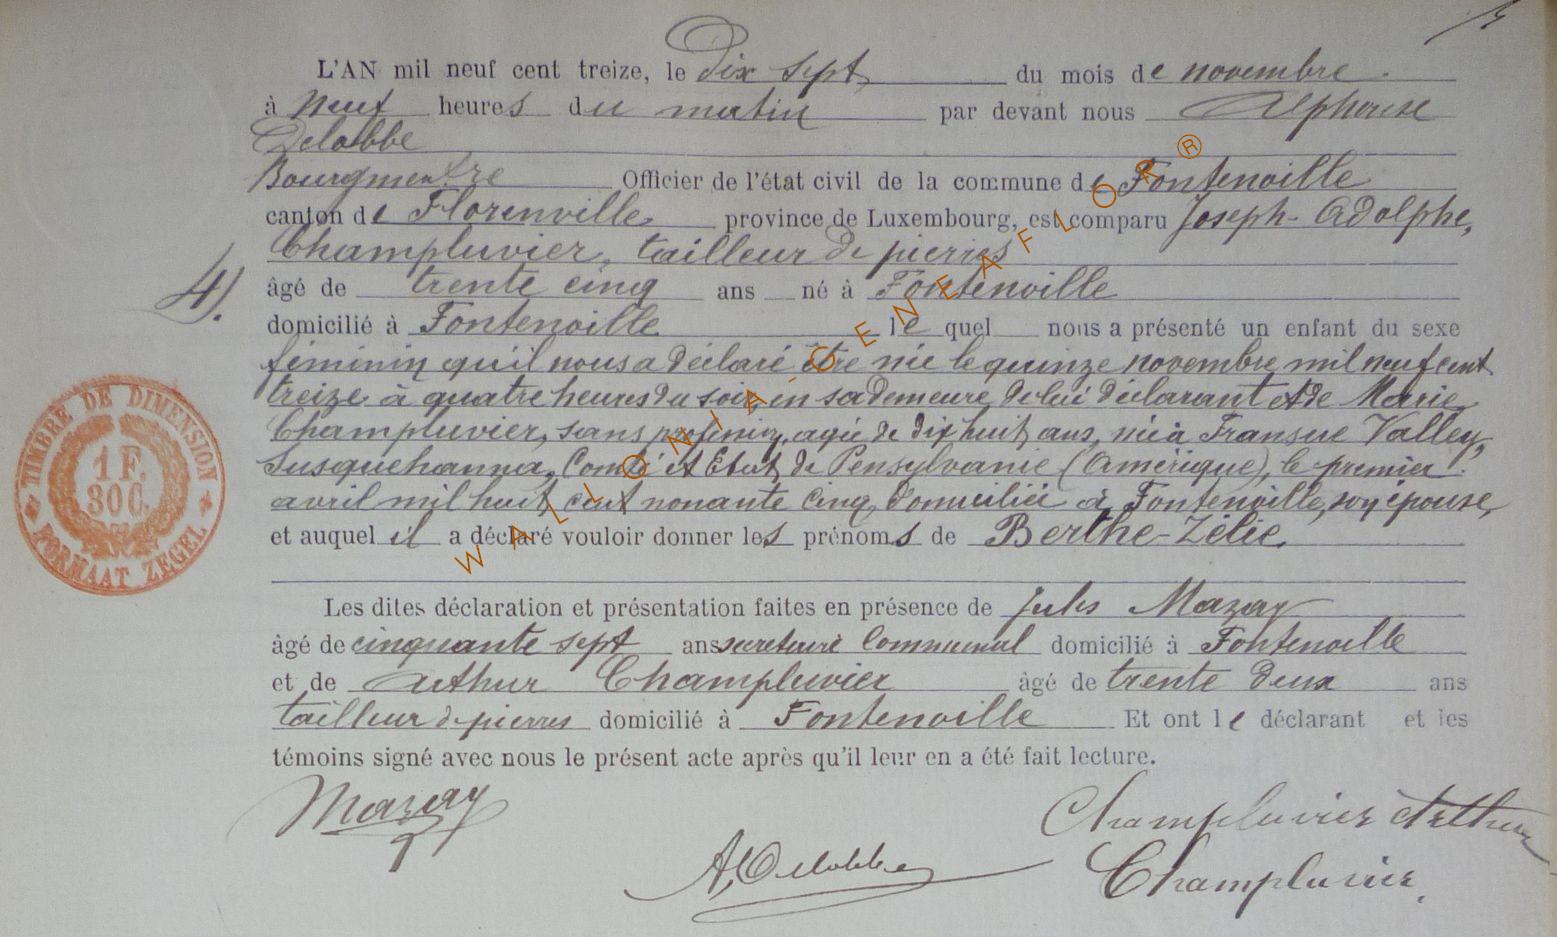 L'AN mil neuf cent treize, le Dix sept du mois de novembre.
à Neuf heures du matin par devant nous Alphonse
Delobbe
Bourgmestre Officier de l'état civil de la commune de Fontenoille
canton de Florenville province de Luxembourg, est comparu Joseph-Adolphe,
Champluvier, tailleur de pierres
4).
âgé de trente cinq ans né à Fontenoille
domicilié à Fontenoille lequel nous a présenté un enfant du sexe
féminin qu'il nous a déclaré être née le quinze novembre mil neuf cent
treize à quatre heures du soir, en sa demeure, de lui déclarant et de Marie
Champluvier, sans profession, agée de dix huit ans, née à Valley,
Susquehanna, Comté et Etat de Pensylvanie (Amérique), le premier
avril mil huit cent nonante cinq domiciliée à Fontenoille, son épouse,
et auquel il a déclaré vouloir donner les prénoms de Berthe-Zélie
Les dites déclaration et présentation faites en présence de Jules Mazay
âgé de cinquante sept ans secretaire Communal domicilié à Fontenoille
et de Arthur Champluvier âgé de trente deux ans
tailleur de pierres domicilié à Fontenoille Et ont le déclarant et les
témoins signé avec nous le présent acte après qu'il leur en a été fait lecture.
Mazay
Champluvier Arthur
A, Delobbe
Champluvier,
TIMBRE DE DIMENSION
1 F.
30 C.
FORMAAT ZEGEL
WALLONIA-GENEAFLOR®